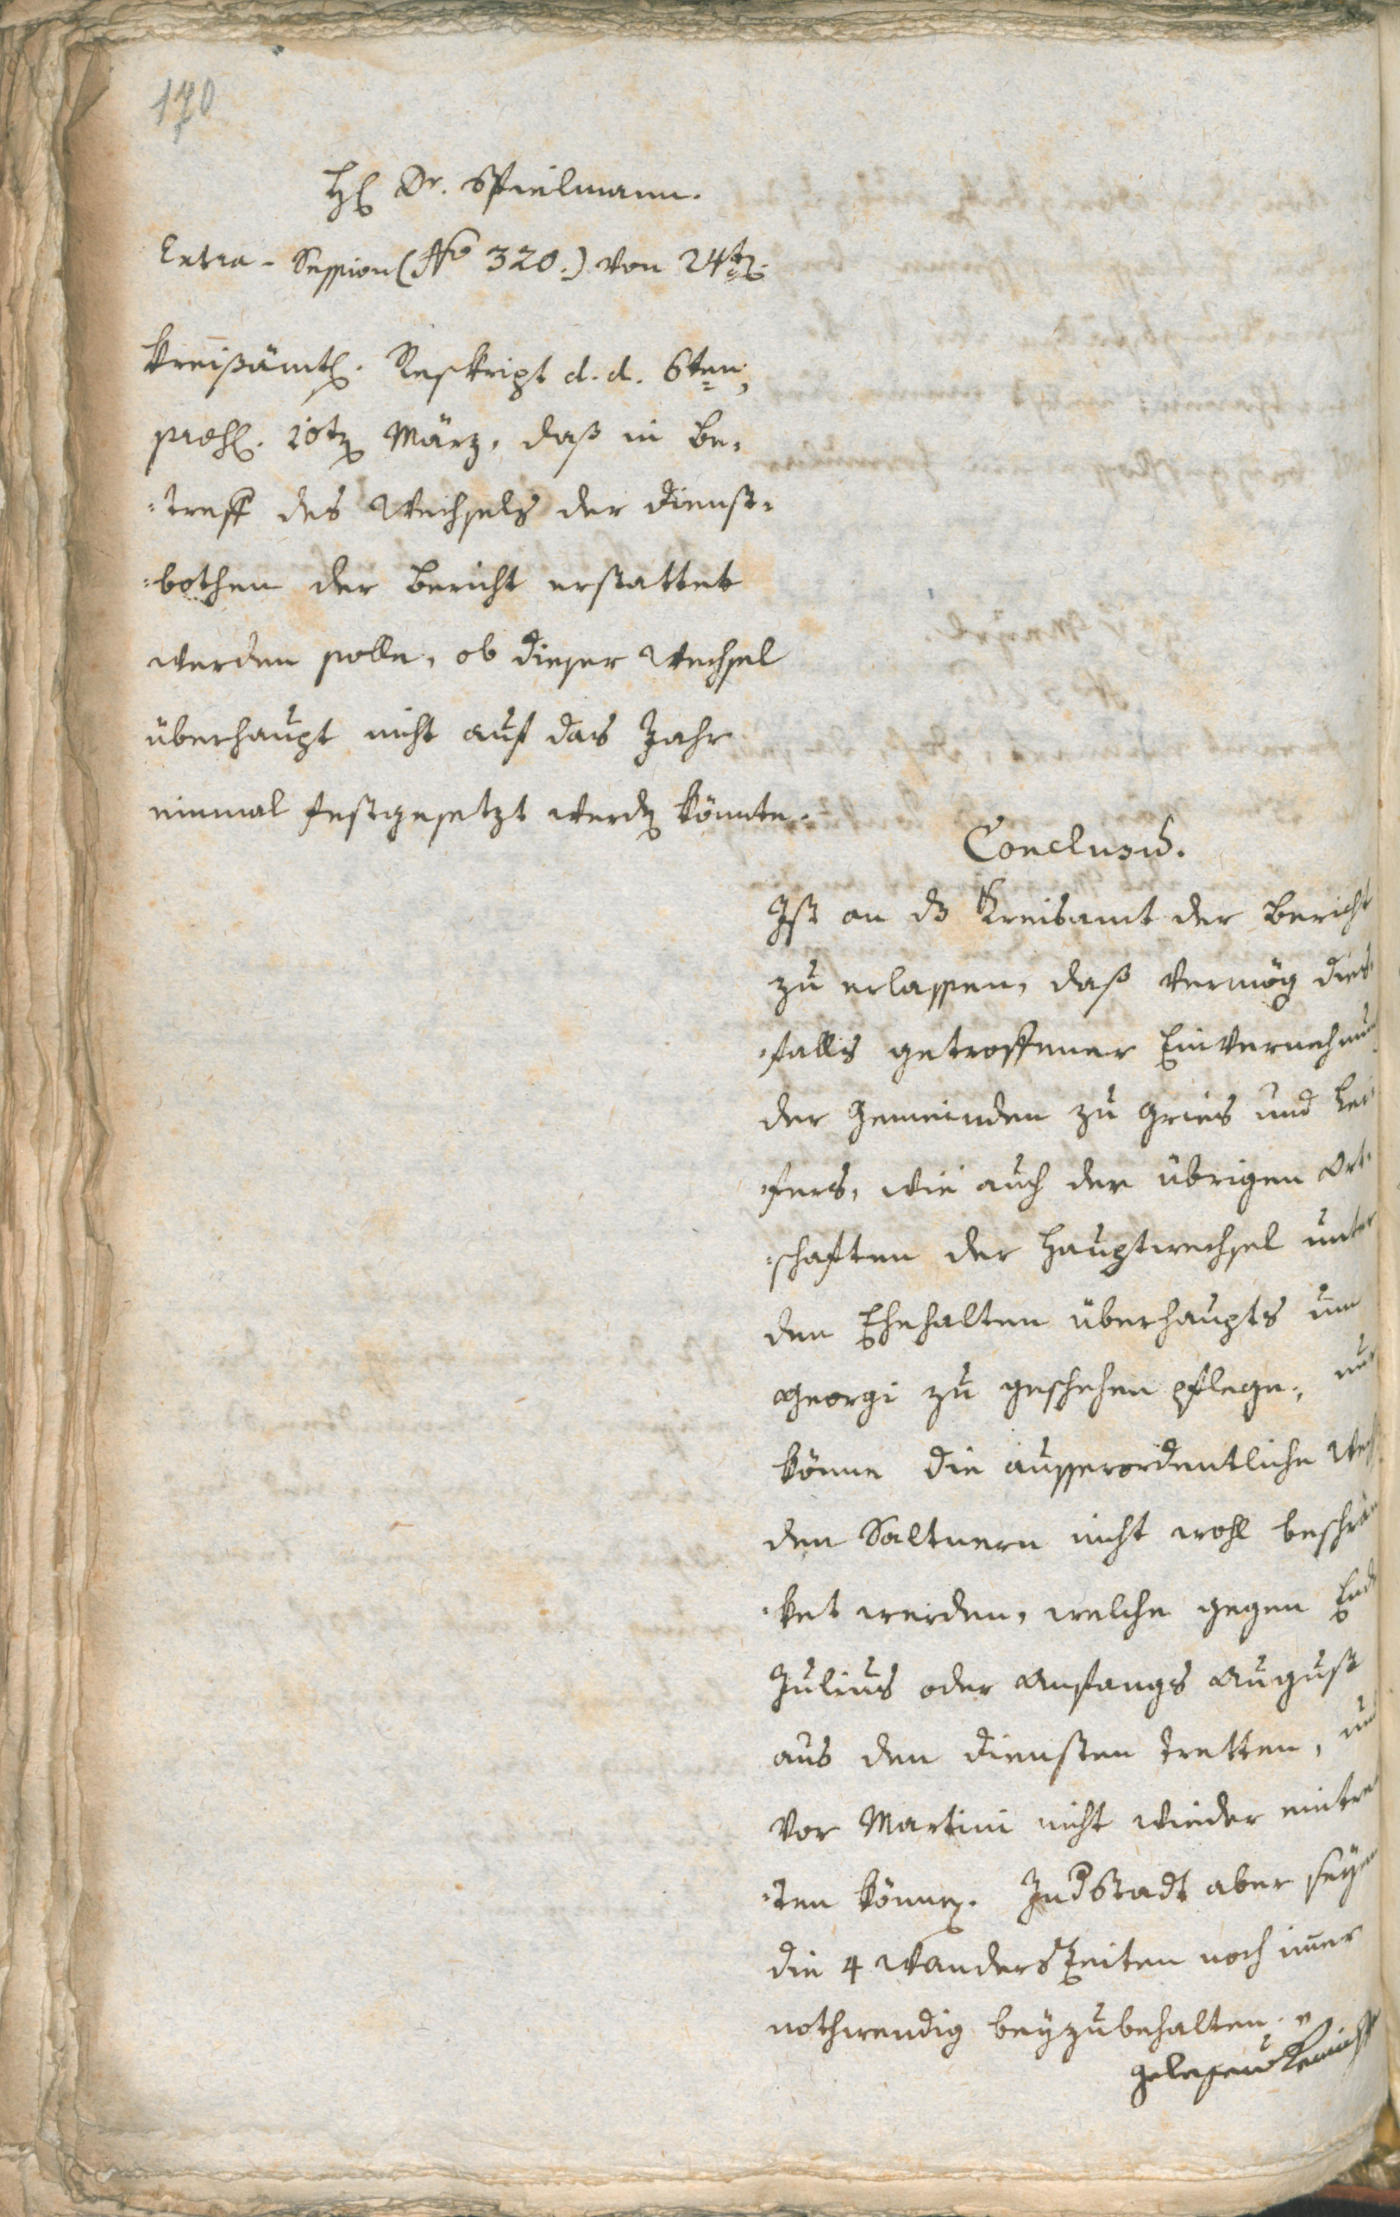 170
H. Dr. Spielmann.
Extra-Session (No 320.) von 24ten
Kreißämtl. Reskript d. d. 6ten,
præs. 20ten März, daß in Be-
-treff des Wechsels der Dienst-
-bothen der Bericht erstattet
werden solle, ob dieser Wechsel
überhaupt nicht auf das Jahr
einmal festgesetzt werden könnte.
Conclusum.
Ist an das Kreisamt der Bericht
zu erlassen, daß vermög dies-
-falls getroffener Einvernehmung
der Gemeinden zu Gries und Lei-
-fers, wie auch der übrigen Ort-
-schaften der Hauptwechsel unter
den Ehehalten überhaupts um
Georgi zu geschehen pflege, nur
könne die ausserordentliche
den Saltnern nicht wohl beschrän-
-ket werden, welche gegen Ende
Julius oder Anfangs August
aus den Diensten tretten, und
vor Martini nicht wieder eintret-
-ten können. In der Stadt aber seyen
die 4 Wanderszeiten noch immer
nothwendig beyzubehalten.
gelesen